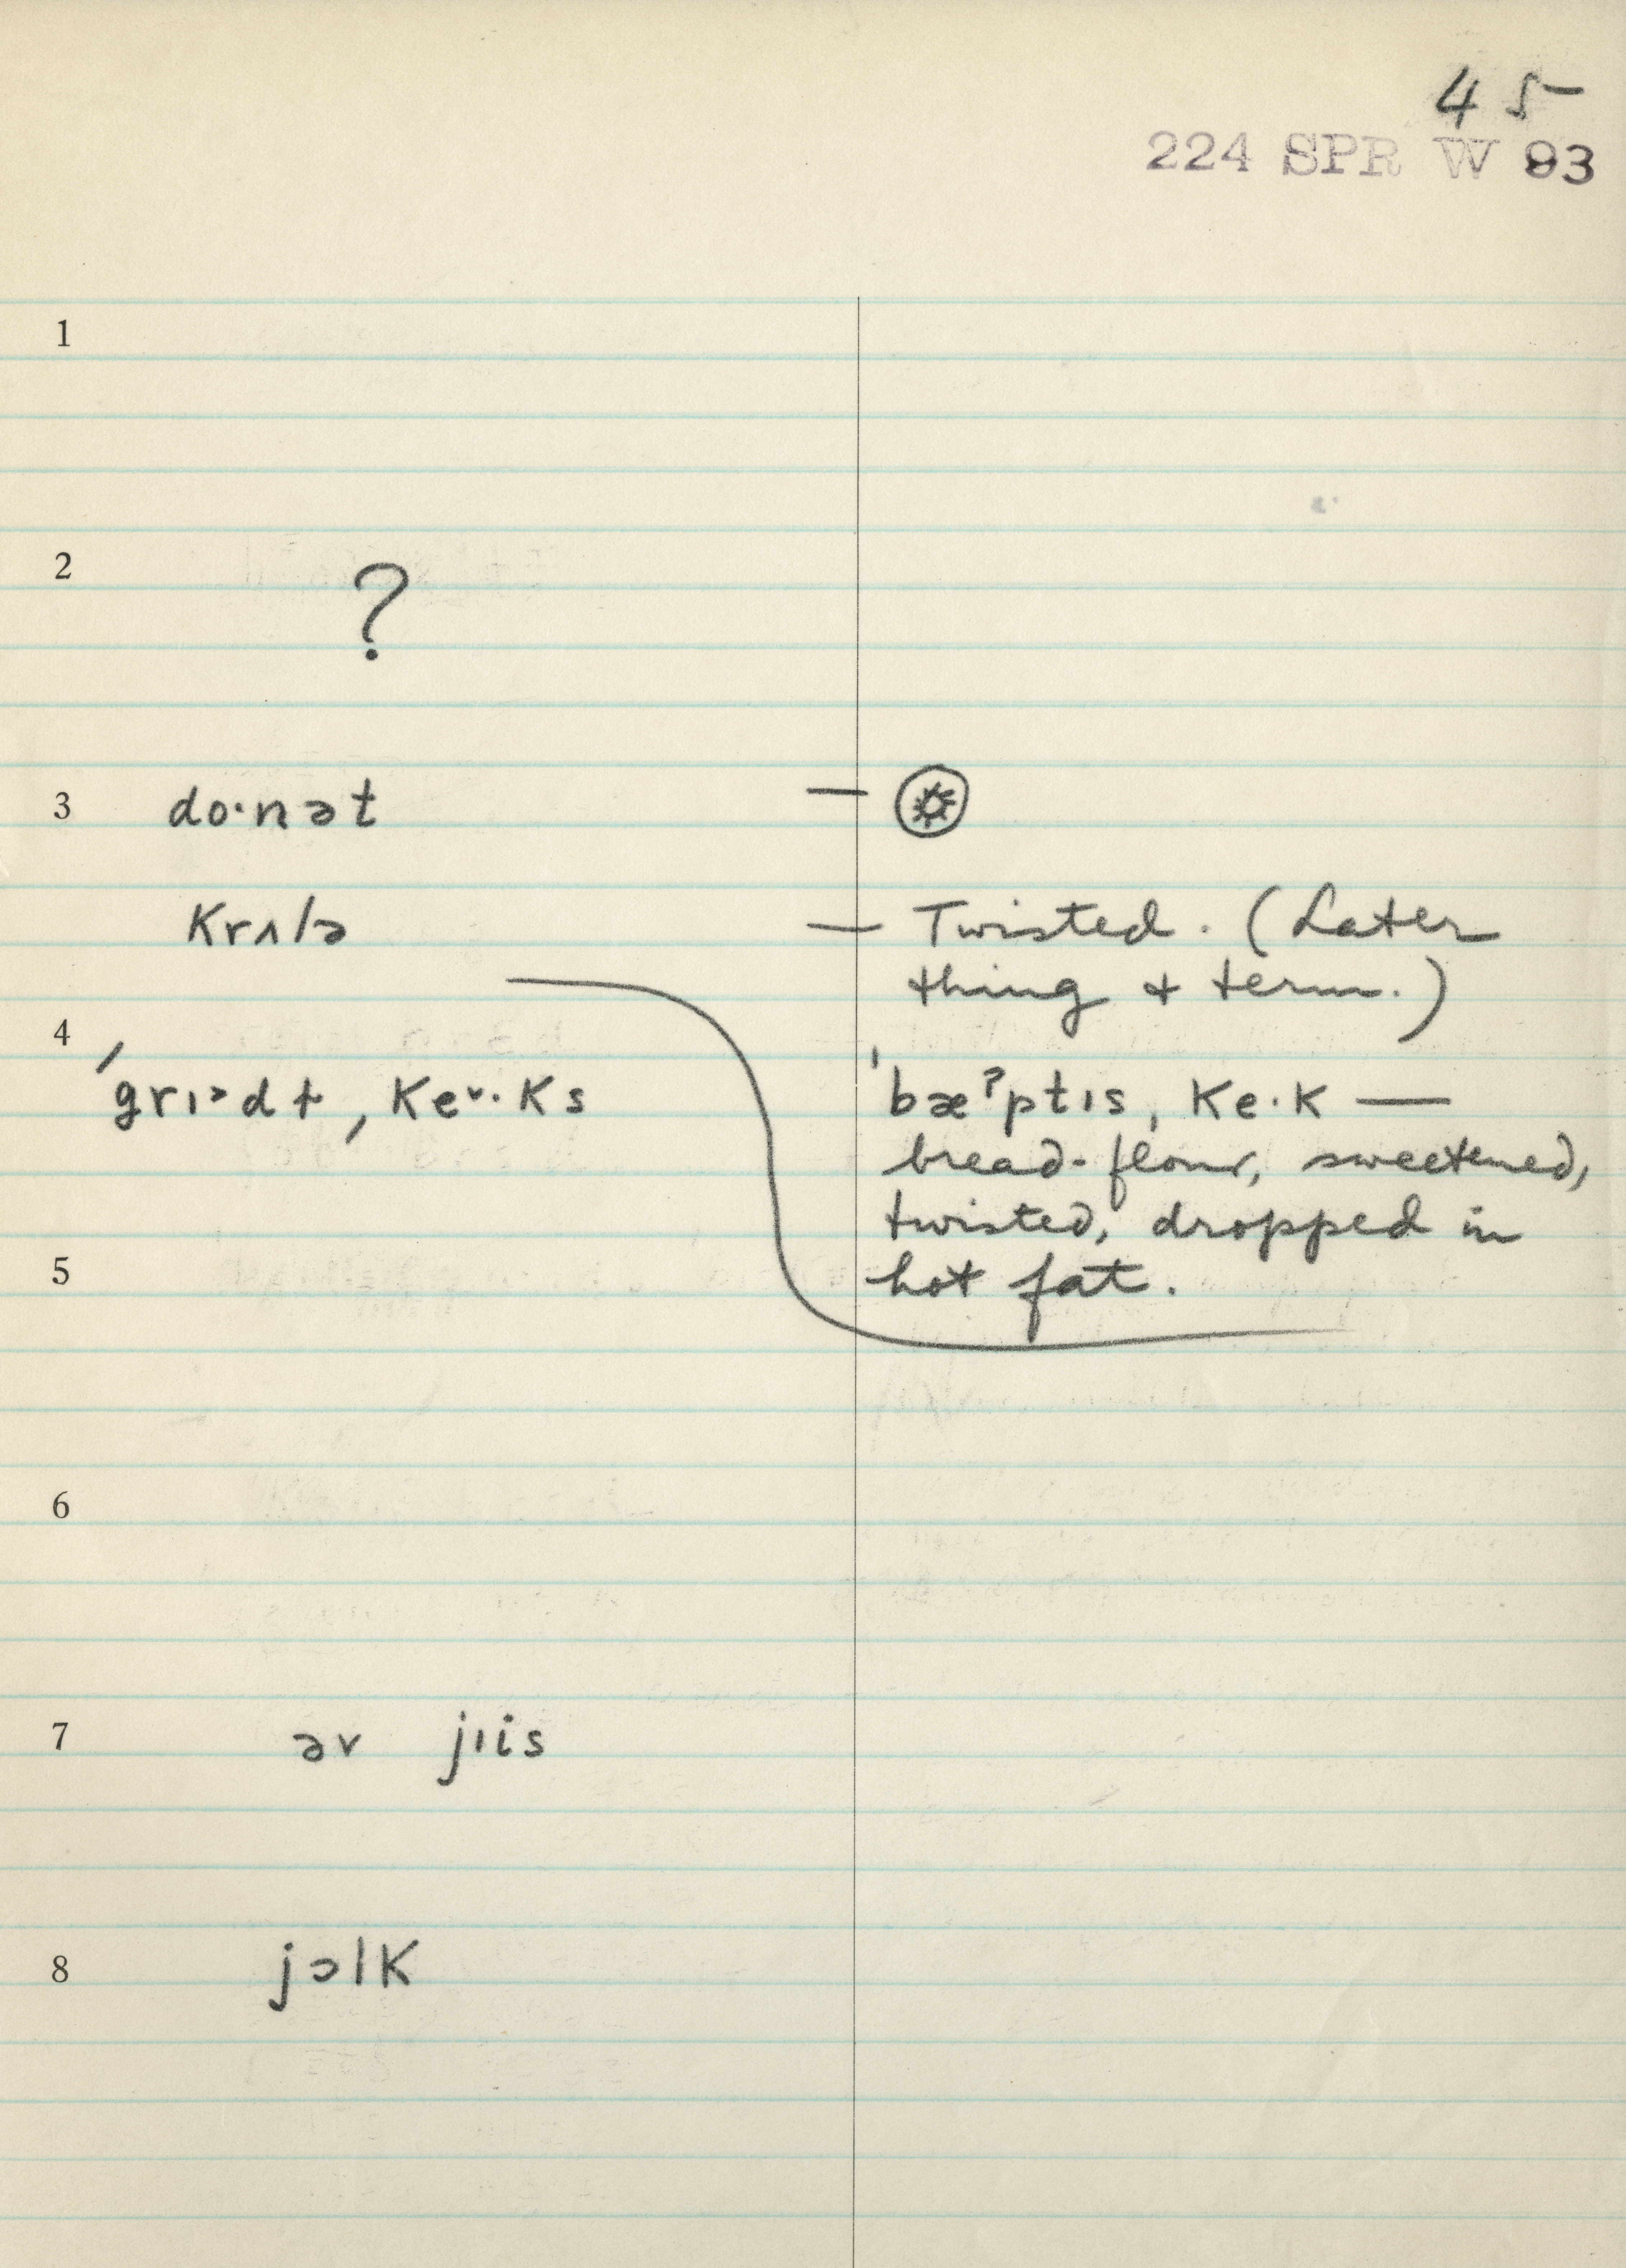 45
224 SPR W 93
1
2 ?
3 do·nət —
krʌlə — Twisted. (Later
thing + term.)
4 ˈgrɪᵊdɫ ˌkeᵛ·ks ˈbæˀptɪs ˌke·k —
bread-flour, sweetened,
twisted, dropped in
5 hot fat.
6
7 əv jɪis
8 jɔlk